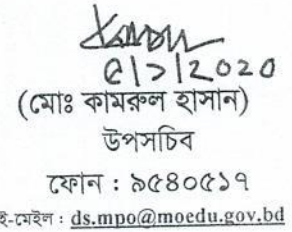 ৫/১/2020
(মোঃ কামরুল হাসান)
উপসচিব
ফোন : ৯৫৪০৫১৭
ই-মেইল : ds.mpo@moedu.gov.bd